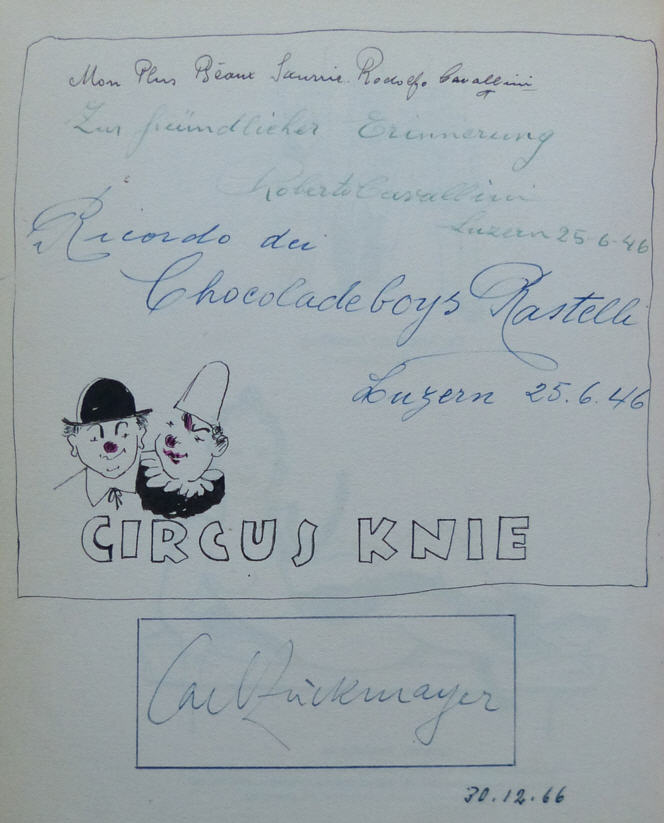 Mon Plus Béaux Sauvnir. Rodolfo Cavallini
Zur freündlicher Erinnerung
Roberto Cavallini
Luzern 25-6-46
Ricordo dei
Chocoladeboys Rastelli
Luzern 25.6.46
CIRCUS KNIE
Carl Zückmayer
30.12.66